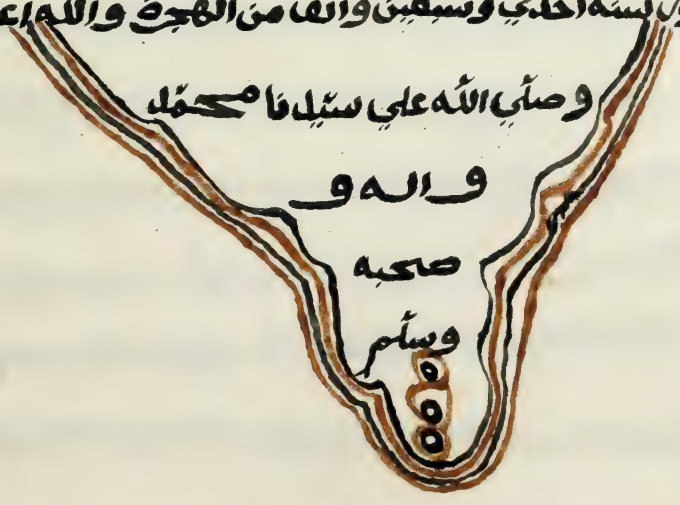 لسنة احدي وسبعين والف من الهجرة والله اع
وصلّي الله علي سيّدنا محمّد
واله و
صحبه
وسلّم
ه
ه
ه